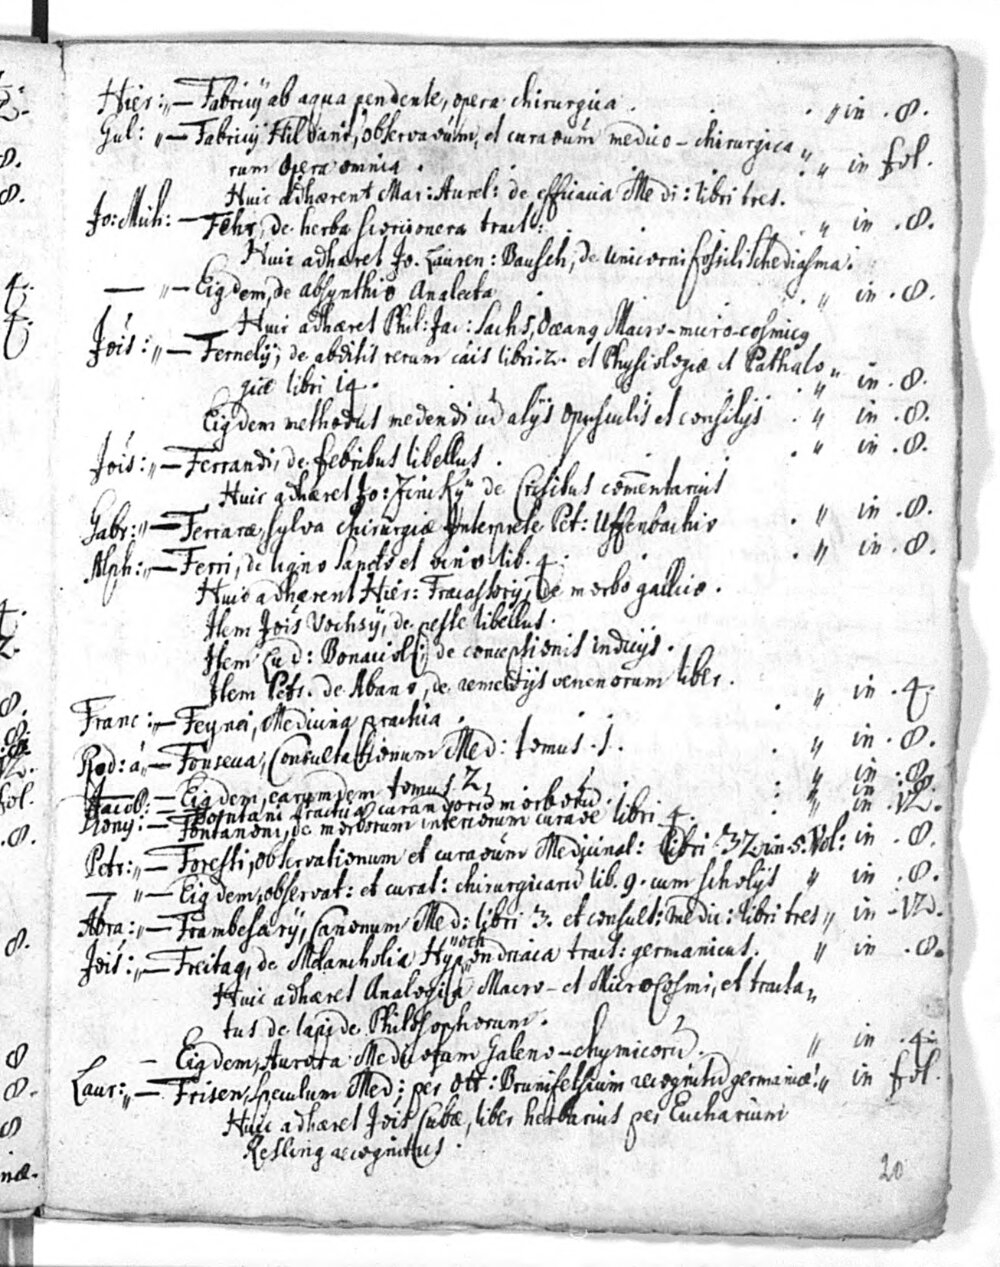 Hier: „ — Fabricÿ ab aqua pendente, opera chirurgica . . „ in . 8.
Gul: „ — Fabricÿ Hildani, observaōūm, et curaōūm medico – chirurgica
rum Opera omnia . . „ „ in fol.
Huic adhærent Mar: Aurel: de efficacia Medi: libri tres.
Jo: Mich: — Fehr, de herba scorzonera tract: . . „ in . 8.
Huic adhæret Jo. Lauren: Bausch, de Unicornu fossili schediasma.
— „ — Eiqdem, de absynthio Analecta . . „ in . 8.
Huic adhæret Phil: Jac: Sachs, Oceang Macro-micro-cosmicq
Jōis: „ — Fernelÿ, de abditis rerum cāis libri 2. et Physiologiæ et Patholo „
giæ libri 14. . „ in . 8.
Eiqdem methodus medendi cū alÿs opusculis et consilÿs . „ in . 8.
Jōis: „ — Ferrandi, de febribus libellus . . „ in . 8.
Huic adhæret Jo: de Crisibus com̄entarius
Gabr: „ — Ferraræ, sylva chirurgiæ Interprete Pet: Uffenbachio . „ in . 8.
Alph: „ — Ferri, de ligno sancto et vino lib. 4. . „ in . 8.
Huic adhærent Hier: Fracastorÿ, de morbo gallico .
Item Jōis Vochsÿ, de peste libellus.
Item Lud: Bonacioli, de conceptionis indicÿs .
Item Petr. de Abano, de remedÿs venenorum liber .
Franc: „ — Feynei, Medicina practica . . „ in . 4.
Rod: á „ — Fonseca, Consultationum Med: tomus . 1. . „ in . 8.
— Eiqdem, earumdem tomus 2. . „ in . 8.
Jacob: — Fontani practica curandorū morborū . : „ in . 8.
Diony: — Fontanoni, de morborum interiorum curaōē libri 4. „ in . 12.
Petr: „ — Foresti, observationum et curaōūm Medicinal: libri 32 in 5. Vol: in . 8.
— „ — Eiqdem, observat: et curat: chirurgicarū lib. 9. cum scholÿs „ in . 8.
Abra: „ — Frambesarÿ, Canonum Med: libri 3. et consult: medic: libri tres „ in . 12.
Jōis: „ — Freitag, de Melancholia Hypochondriaca tract: germanicus. „ in . 8.
Huic adhæret Analogia Macro- et Microcosmi, et tracta „
tus de lapide Philosophorum.
— Eiqdem, Aurora Medicorum Galeno-chymicorū. „ in . 4.
Laur: „ — Frisen, speculum Med: per Ott: Brunfelsium recognitū germanicè „ in fol.
Huic adhæret Jōis Cubæ, liber herbarius per Eucharium
Resling recognitus .
20